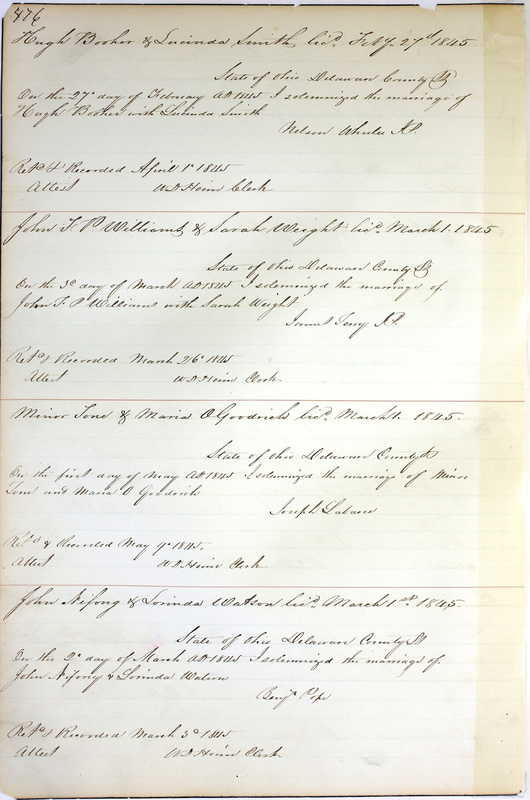 476
Hugh Booher & Lucinda Smith, licd. Feby. 27d 1845
State of Ohio Delaware County SS
On the 27d day of February AD 1845 I solemnized the marriage of
Hugh Booher with Lucinda Smith
Nelson Wheeler J.P.
Retd & Recorded April 1st 1845
Attest W D Heim Clerk
John F. P Williams & Sarah Weight licd. March 1. 1845
State of Ohio Delaware County SS
On the 3d day of March AD 1845 I solemnized the marriage of
John F. P Williams with Sarah Weight
Terry J.P.
Retd & Recorded March 26th 1845
Attest W D Heim Clerk
Minor Tone & Maria O Goodrich licd. March 1. 1845.
State of Ohio Delaware County SS
On the first day of May AD 1845 I solemnized the marriage of Minor
Tone and Maria O Goodrich
Joseph Labare
Retd & Recorded May 9th 1845.
Attest W D Heim Clerk
John Nifong & Lorinda Watson licd. March 1st 1845.
State of Ohio Delaware County SS
On the 2d day of March AD 1845 I solemnized the marriage of
John Nifong & Lorinda Watson
Benjn Pope
Retd & Recorded March 3d 1845
Attest W D Heim Clerk